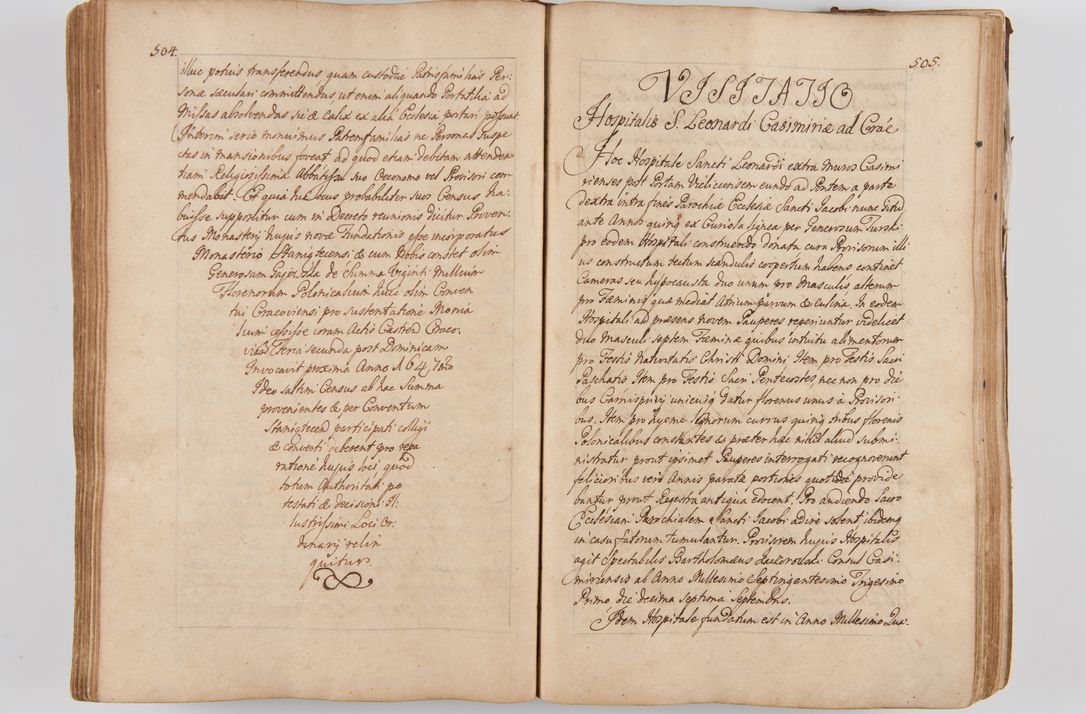 504.
illuc potius transferendus quam custodiæ Patrisfamilias Per-
sonæ sæculari committendus, ut enim aliquando Portatilia ad
Missas absolvendas sic & Calix ex aliâ Ecclesiâ portari possunt
Interim serio monuimus Patremfamilias ne Personæ suspe-
ctæ in transionibus foveat ad quod etiam debitam attenden-
tiam Religiosissima Abbatissa suo Oeconomo vel Provisori com-
mendabit. Et quia hic locus probabiliter suos Census ha-
buisse supponitur cum in Decreto reunionis dicitur Proven-
tus Monasterij hujus novæ Fundationis esse incorporatus
Monasterio Staniątecensi & cum Nobis constet olim
Generosum de Summa Viginti Millium
Florenorum Polonicalium huic olim Conven
tui Cracoviensi pro sustentatione Monia
lium cessisse coram Actis Castren Craco-
vien Feria secunda post Dominicam
Invocavit proxima Anno 1647mo
Ideo saltim Census ab hac Summa
provenientes & per Conventum
Staniątecen participati colligi
& converti deberent pro repa
ratione hujus loci quod
totum Authoritati po
testati & decisioni Il-
lustrissimi Loci Or-
dinarij relin
quitur.
505.
VISITATIO
Hospitalis S. Leonardi Casimiriæ ad Crac̃
Hoc Hospitale Sancti Leonardi extra muros Casimi-
rienses post Portam Vielicensem eundo ad Pontem a parte
dextra intra fines Parochiæ Ecclesiæ Sancti Jacobi nunc situm
ante Annos quinq ex Curiola lignea per Generosum Turski
pro eodem Hospitali construendo donata cura Provisorum illi
us constructum tectum scandulis coopertum habens continet
Cameras seu hypocausta duo unum pro Masculis alterum
pro Fæminis quæ mediat Atrium parvum & culina. In eodem
Hospitali ad præsens novem Pauperes reperiuntur videlicet
duo Masculi septem Fæminæ quibus intuitu alimentorum
pro Festo Nativitatis Christi Domini Item pro Festo Sacri
Paschatis Item pro Festo Sacri Pentecostes, nec non pro die
bus Carnisprivij unicuiq datur florenus unus à Provisori
bus. Item pro hyeme lignorum currus quinq tribus florenis
Polonicalibus constantes & præter hæc nihil aliud submi-
nistratur prout ipsimet Pauperes interrogati recognoverunt
felicioribus verò Annis paratæ portiones quotidie provide
bantur prout Regestra antiqua edocent. Pro audiendo Sacro
Ecclesiam Parochialem Sancti Jacobi adire solent ibidemq
in casu fatorum tumulantur. Provisorem hujus Hospitalis
agit Spectabilis Bartholomæus Consul Casi-
miriensis ab Anno Millesimo Septingentesimo Trigesimo
Primo die decima septima Septembris.
Idem Hospitale fundatum est in Anno Millesimo Qua-